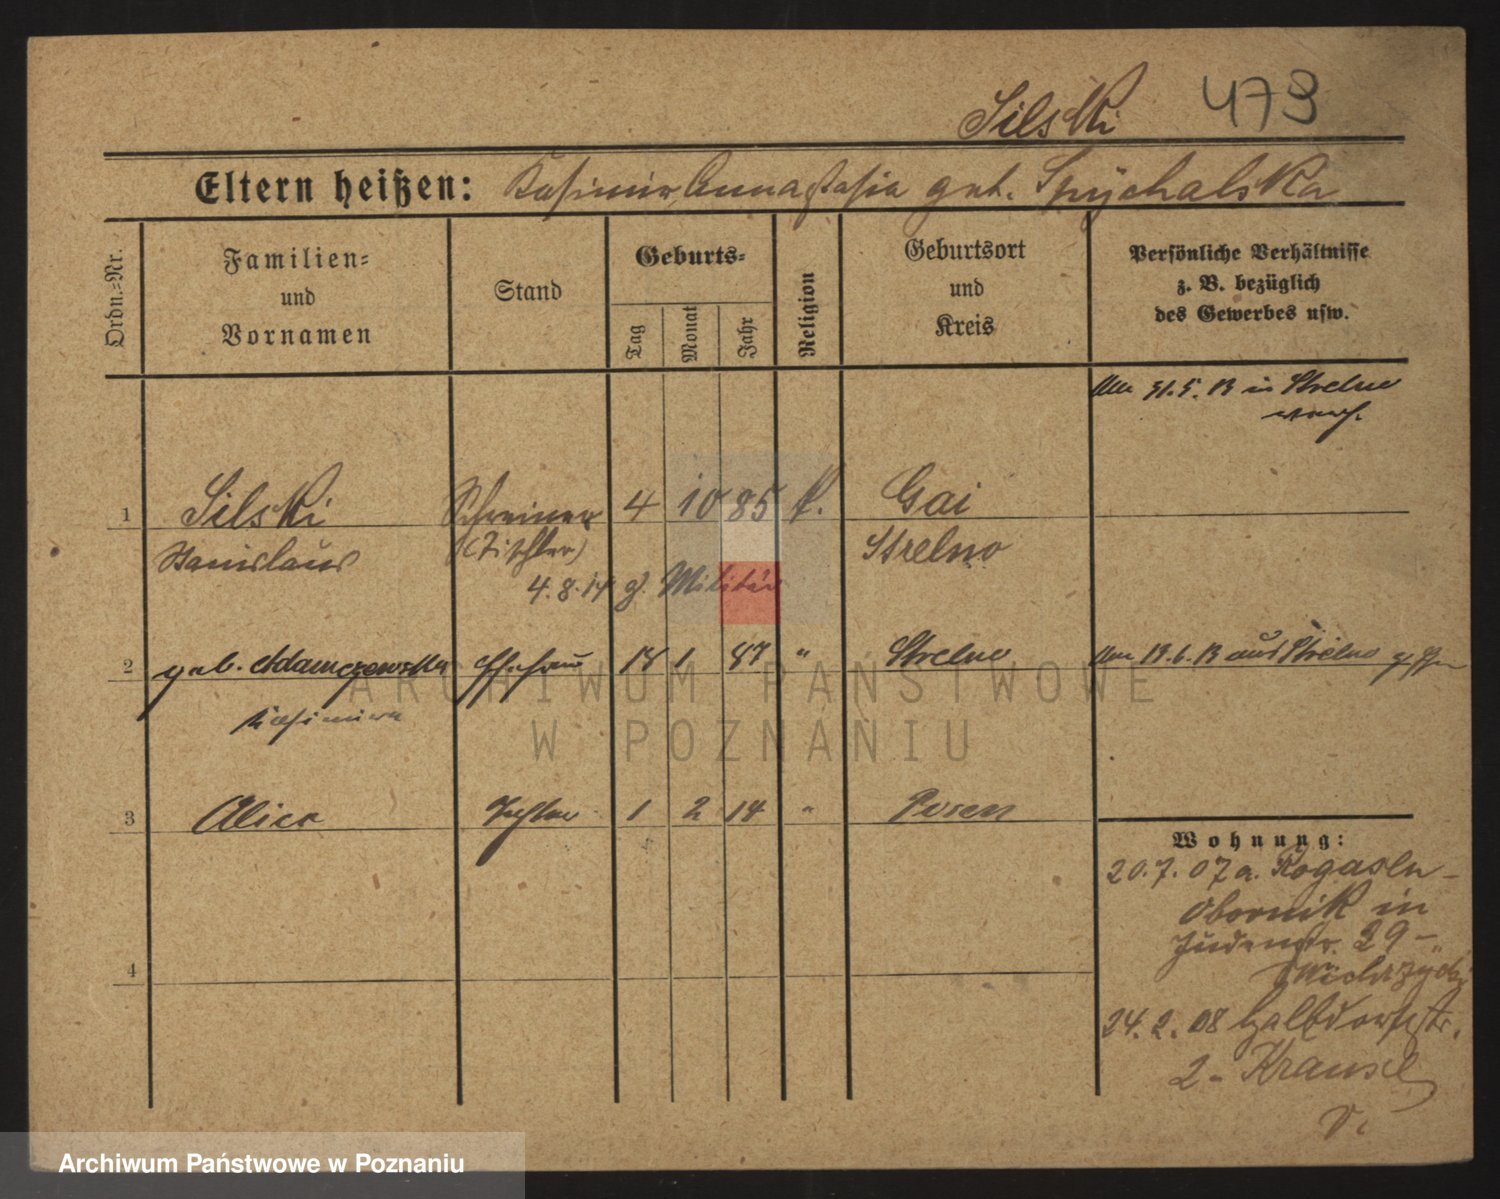 Silski 473
Eltern heißen: Kasimir, Annastasia geb. Spychalska
Ordn.-Nr.
Familien-
und
Vornamen
Stand
Geburts-
Tag
Monat
Jahr
Religion
Geburtsort
und
Kreis
Persönliche Verhältnisse
z. B. bezüglich
des Gewerbes usw.
Am 31.5.13 in Strelno
verh.
1 Silski Schreiner 4 10 85 k. Gai
Stanislaus (Tischler) Strelno
4.8.14 z. Militär
2 geb. Adamczewska Ehefrau 18 1 87 " Strelno Am 13.6.13 aus Strelno
Kasimira
3 Alice Tochter 1 2 14 " Posen
4
Wohnung:
20.7.07 a. Rogasen-
Obornik in
Judenstr. 29-
24.2.08 Halbdorfstr.
2- Krause
ARCHIWUM PAŃSTWOWE
W POZNANIU
Archiwum Państwowe w Poznaniu